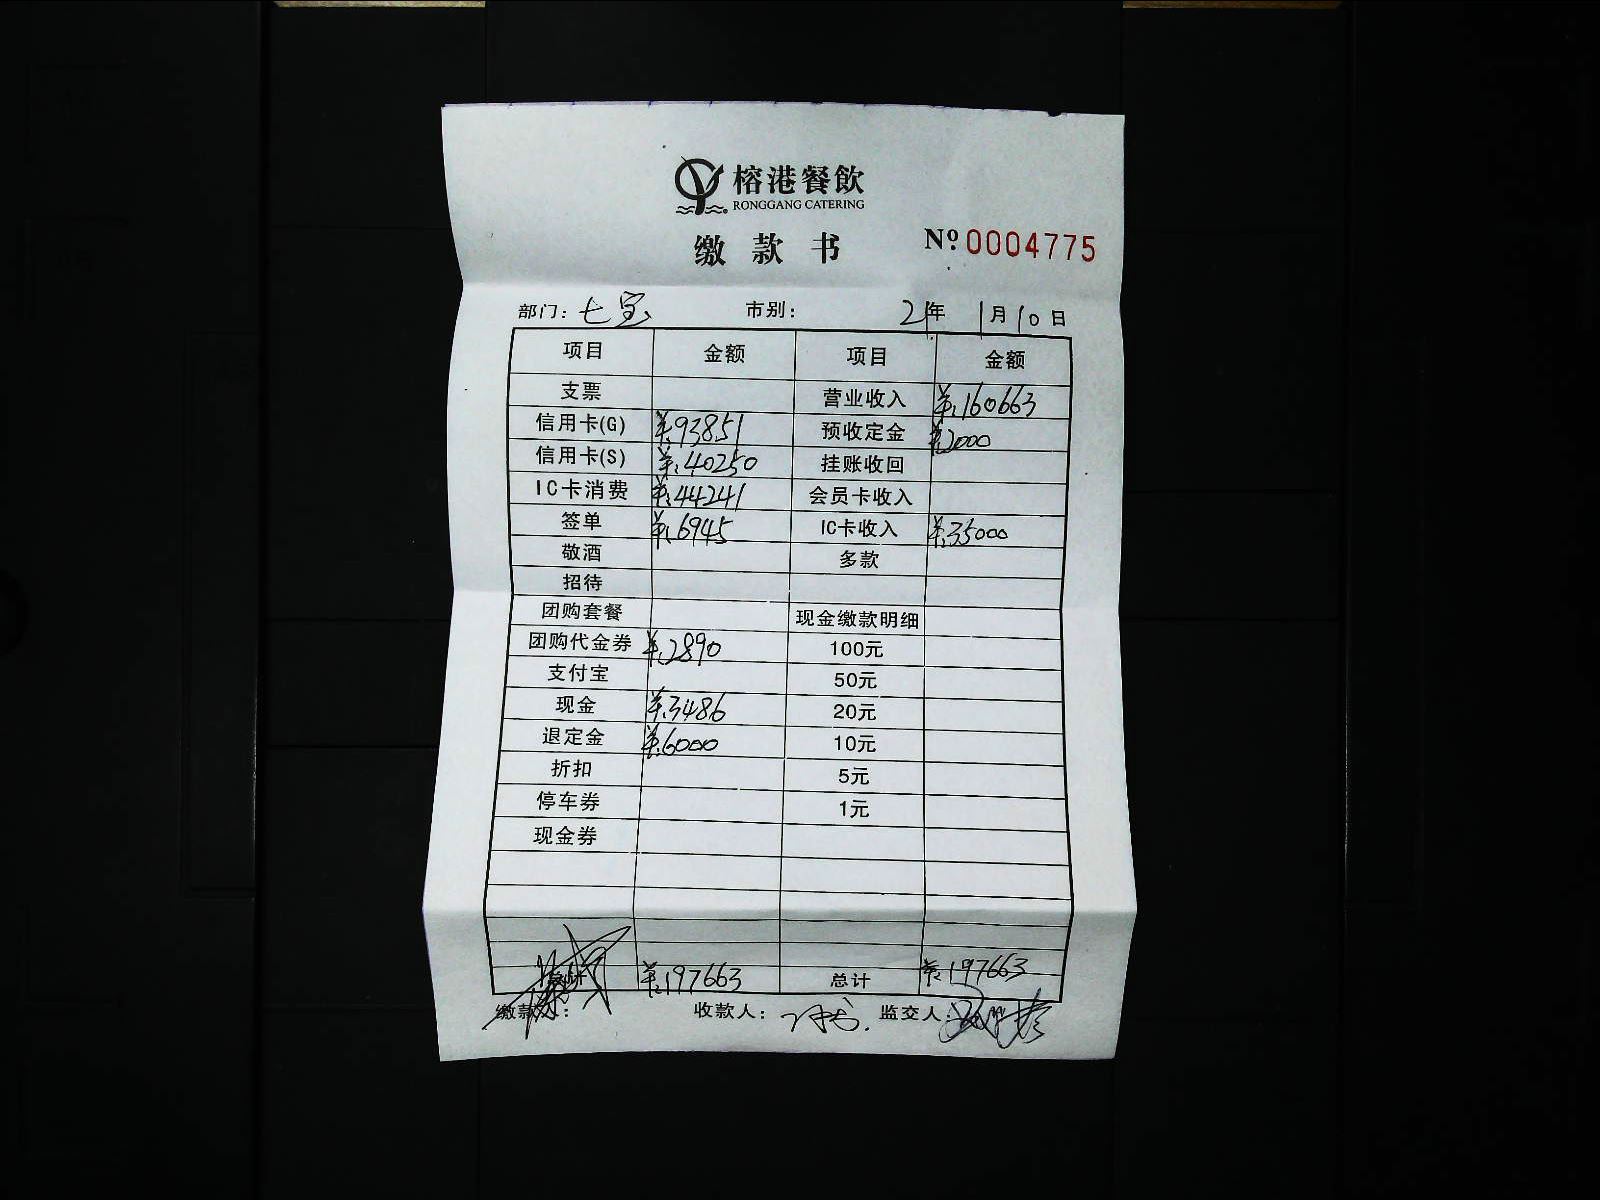 榕港餐飲
RONGGANG CATERING
缴款书 Nº.0004775
部门：七宝 市别： 21年 1月10日
项目 金额 项目 金额
支票 营业收入 ¥:160663
信用卡(G) ¥:93851 预收定金 ¥:2000
信用卡(S) ¥:40250 挂账收回
IC卡消费 ¥:44241 会员卡收入
签单 ¥:6945 IC卡收入 ¥:35000
敬酒 多款
招待
团购套餐 现金缴款明细
团购代金券 ¥:2890 100元
支付宝 50元
现金 ¥:3486 20元
退定金 ¥:6000 10元
折扣 5元
停车券 1元
现金券
总计 ¥:197663 总计 ¥:197663
缴款人： 收款人： 监交人：